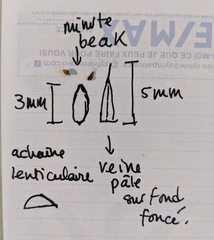 minute
beak
3mm
5mm
achaine
lenticulaire
veine
pâle
sur fond
foncé.